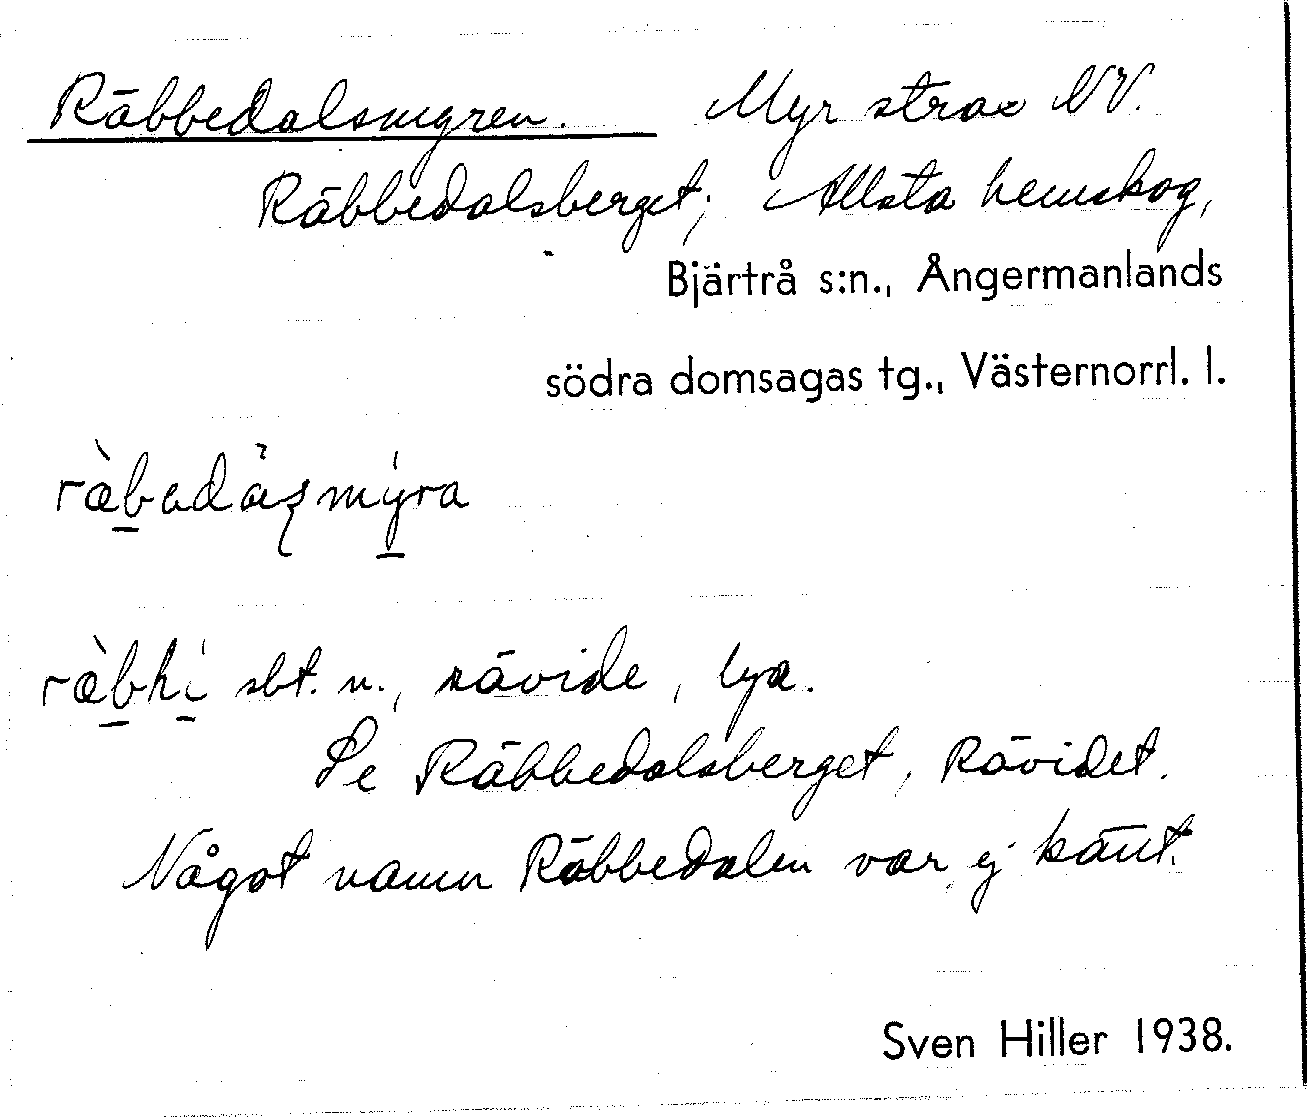 Räbbedalsmyren. Myr strax NV.
Räbbedalsberget; Allsta hemskog,
Bjärtrå s:n., Ångermanlands
södra domsagas tg., Västernorrl. l.
sbt. n., rävide, lya.
Se Räbbedalsberget, Rävidet.
Något namn Räbbedalen var ej känt.
Sven Hiller 1938.